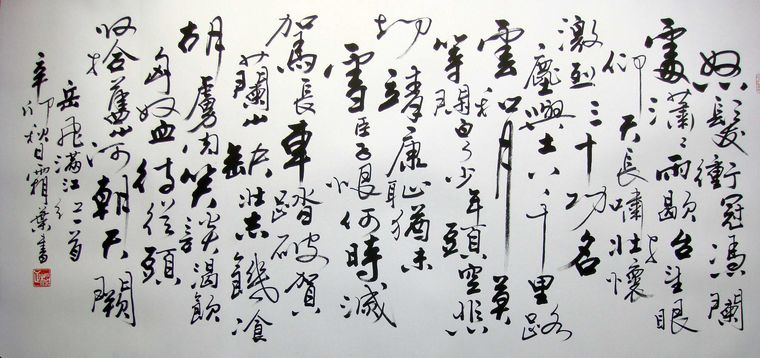 怒髮衝冠馮闌
處瀟瀟雨歇抬望眼
仰天長嘯壯懷
激烈三十功名
塵與土八千里路
雲和月莫
等閑白了少年頭空悲
切靖康恥猶未
雪臣子恨何時滅
駕長車踏破賀
蘭山缺壯志饑飡
胡虜肉笑談渴飲
匈奴血待從頭
收拾舊山河朝天闕
岳飛滿江紅一首
辛卯秋日霜葉書